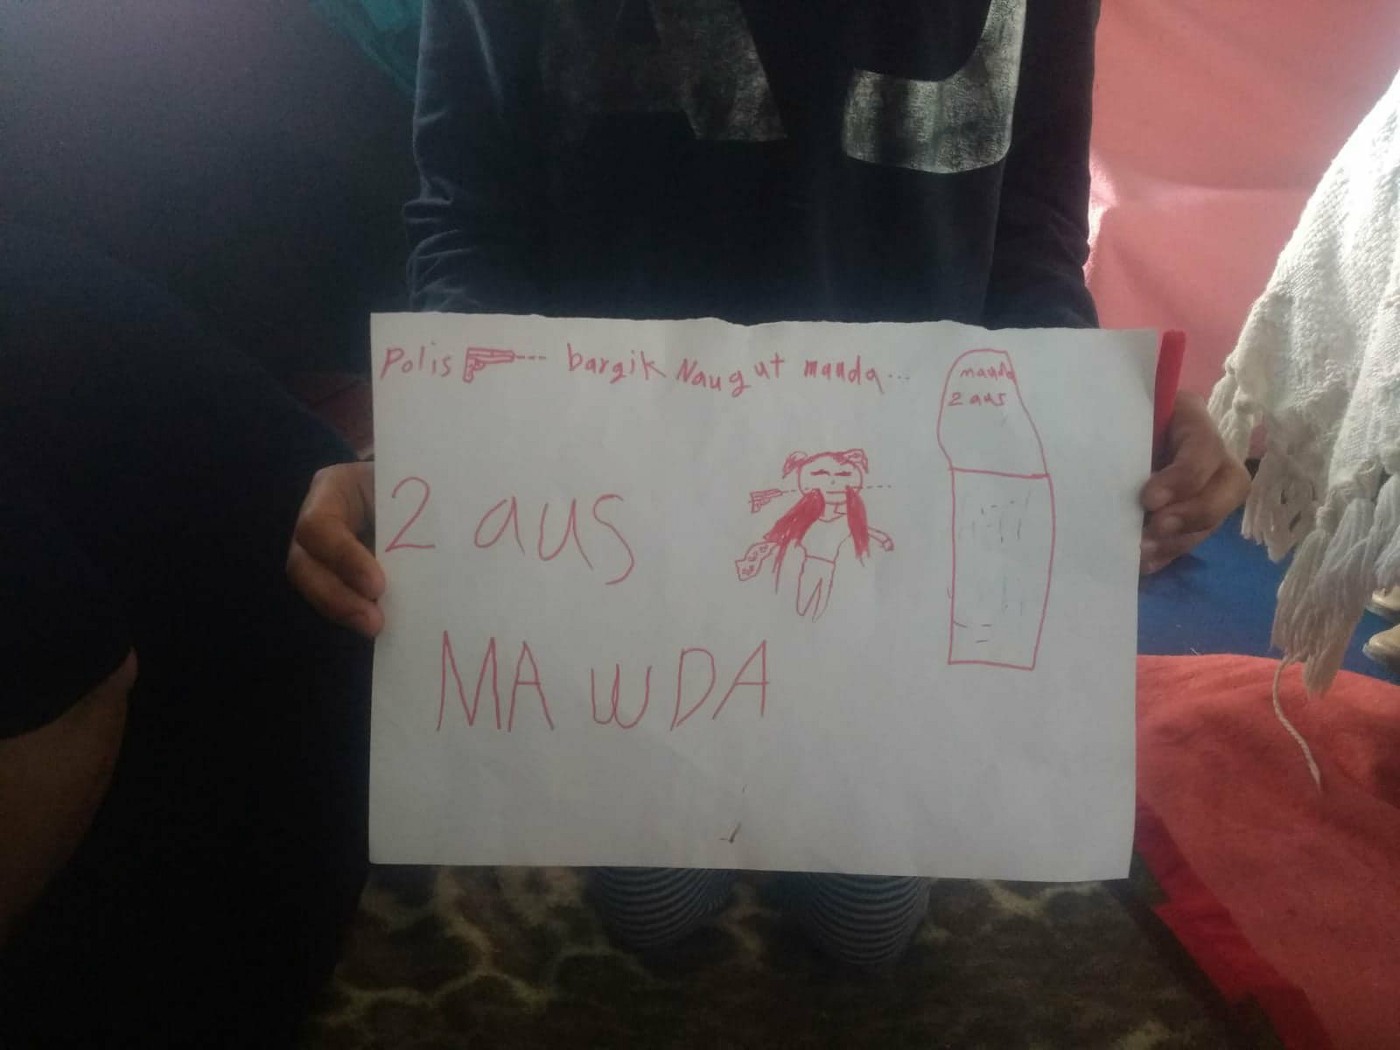 Polis bargik Naugut mauda...
mauda
2 aus
2 aus
MAWDA